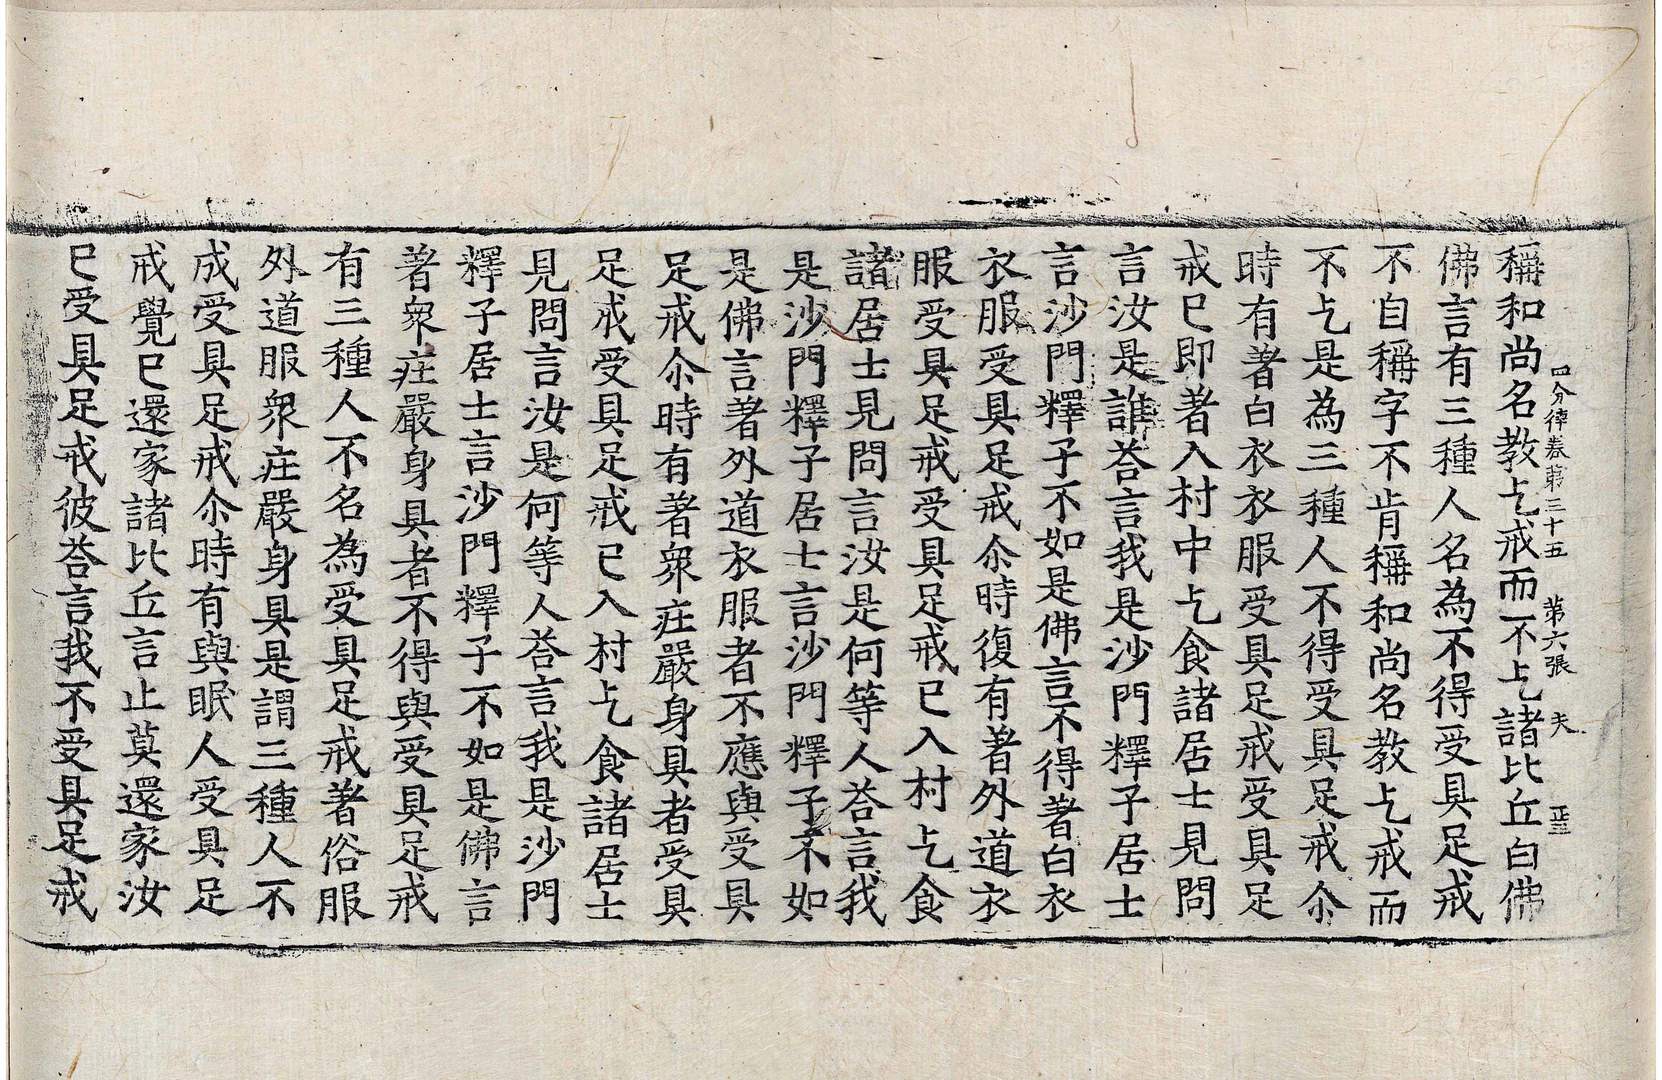 四分律卷第三十五 第六張 夫
稱和尚名教乞戒而不乞諸比丘白佛
佛言有三種人名為不得受具足戒
不自稱字不肯稱和尚名教乞戒而
不乞是為三種人不得受具足戒尒
時有著白衣衣服受具足戒受具足
戒已即著入村中乞食諸居士見問
言汝是誰荅言我是沙門釋子居士
言沙門釋子不如是佛言不得著白衣
衣服受具足戒尒時復有著外道衣
服受具足戒受具足戒已入村乞食
諸居士見問言汝是何等人荅言我
是沙門釋子居士言沙門釋子不如
是佛言著外道衣服者不應與受具
足戒尒時有著衆庄嚴身具者受具
足戒受具足戒已入村乞食諸居士
見問言汝是何等人荅言我是沙門
釋子居士言沙門釋子不如是佛言
著衆庄嚴身具者不得與受具足戒
有三種人不名為受具足戒著俗服
外道服衆庄嚴身具是謂三種人不
成受具足戒尒時有與眠人受具足
戒覺已還家諸比丘言止莫還家汝
已受具足戒彼荅言我不受具足戒